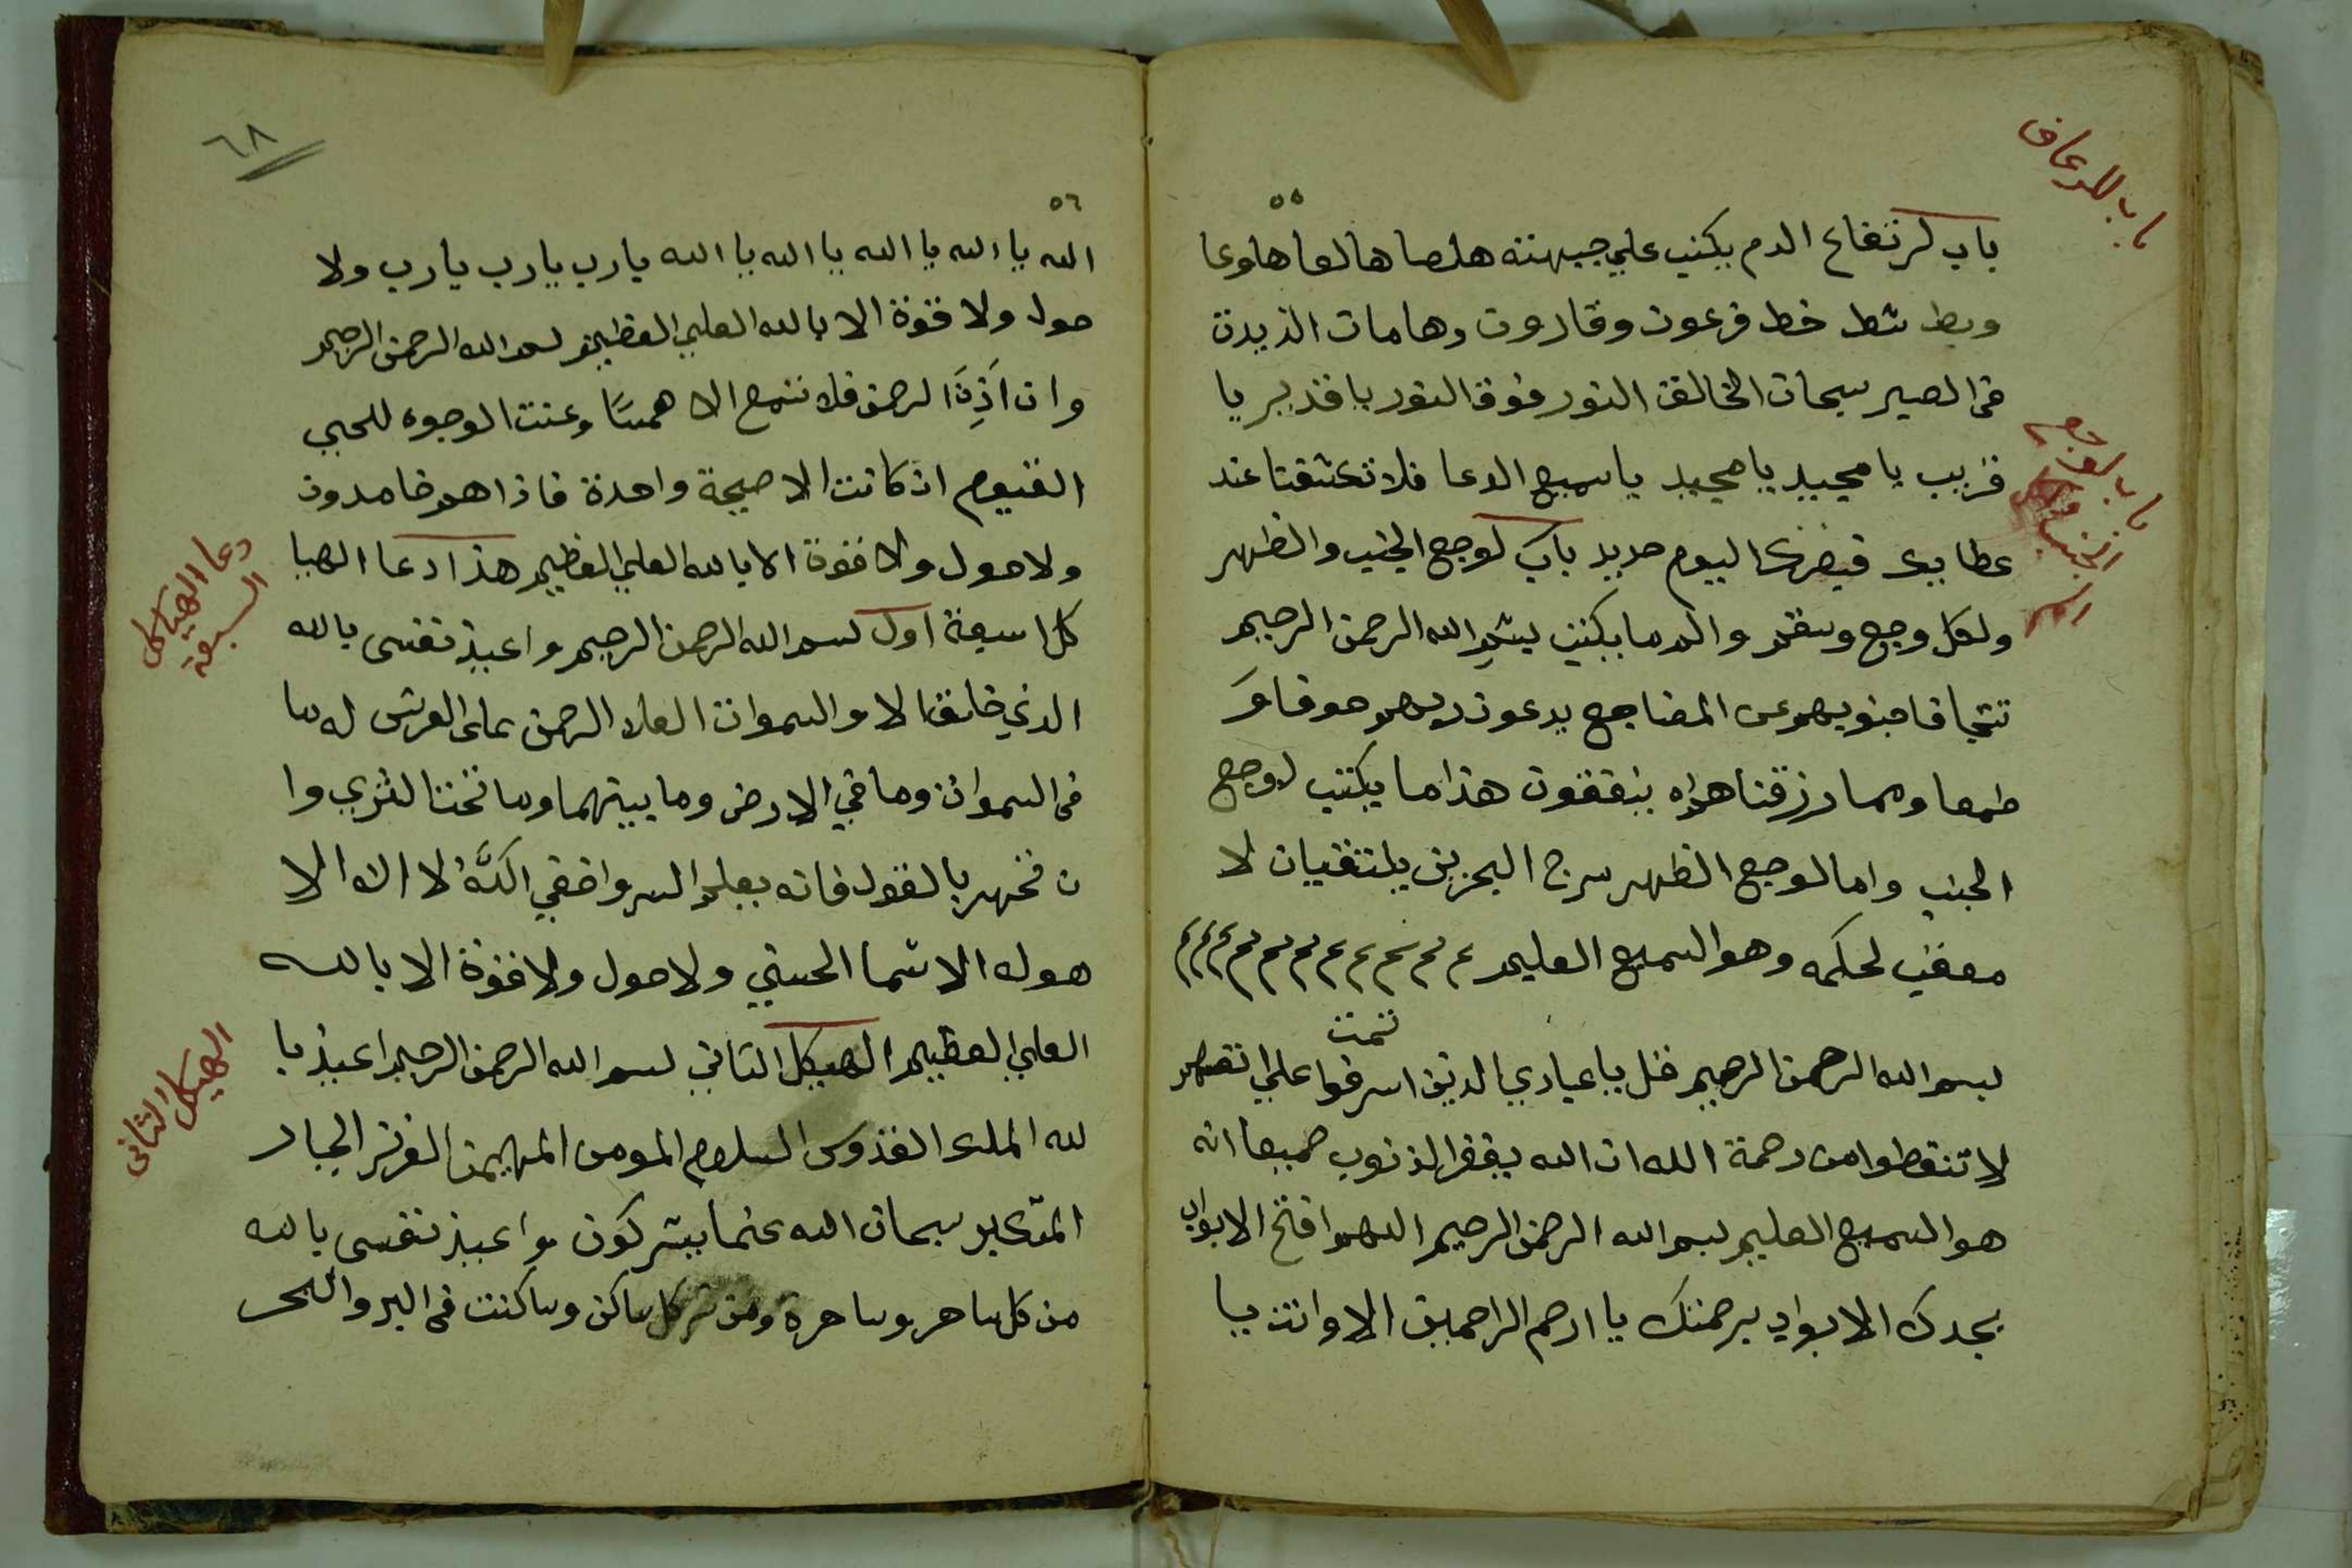 باب للرعاف
٥٥
باب لارتفاع الدم يكتب علي جبهته هلصا هالعا هلوعا
وبط شط خط فرعون وقارون وهامان الذيدن
فى الصير سبحان الخالق النور فوق النور يا قدير يا
قريب يا مجيد يا مجيد يا سميع الدعا فلا تكشفنا عند
عطا فبصرك اليوم حديد باب لوجع الجنب والظهر
ولكل وجع وسقم والدم يكتب بسم الله الرحمن الرحيم
تتجافا جنوبهم عن المضاجع يدعون ربهم خوفا وَ
طمعا ومما رزقناهم ينفقون هذا ما يكتب لوجع
الجنب واما لوجع الظهر مرج البحرين يلتقيان لا
معقب لحكمه وهو السميع العليم
تمت
بسم الله الرحمن الرحيم قل يا عبادي الدين اسرفوا علي انفسهم
لا تنقطوا من رحمة الله ان الله يغفر الذنوب جميعا انه
هو السميع العليم بسم الله الرحمن الرحيم اللهم افتح الابواب
بجدك الابواب برحمتك يا ارحم الراحمين الا وانت يا
باب لوجع
الجنب
٦٨
٥٦
الله يا الله يا الله يا الله يا الله يارب يارب يارب ولا
حول ولا قوة الا بالله العلي العظيم بسم الله الرحمن الرحيم
وان اَذِنَ الرحمن فلا تسمع الا همسًا وعنت الوجوه للحيي
القيوم ان كانت الا صيحة واحدة فاذا هم خامدون
ولا حول ولا قوة الا بالله العلي العظيم هذا دعا الهيا
كل السبعة اول بسم الله الرحمن الرحيم واعيذ نفسى بالله
الدي خالق الا والسموات العلا الرحمن على العرش له ما
فى السموات وما في الارض وما بينهما وما تحت الثري وا
ن تجهر بالقول فانه يعلم السر واخفي اللَّهُ لا اله الا
هو له الاسما الحسني ولا حول ولا قوة الا بالله
العلي العظيم الهيكل الثاني بسم الله الرحمن الرحيم اعيذ با
لله الملك القدوس السلام المومن المهيمن العزيز الجبار
المتكبر سبحان الله عنما يشركون واعيذ نفسى بالله
من كل ساحر وساحرة ومن شر كل ساكن وساكنت فى البر والبحر
دعا الهياكل
السبعة
الهيكل الثانى